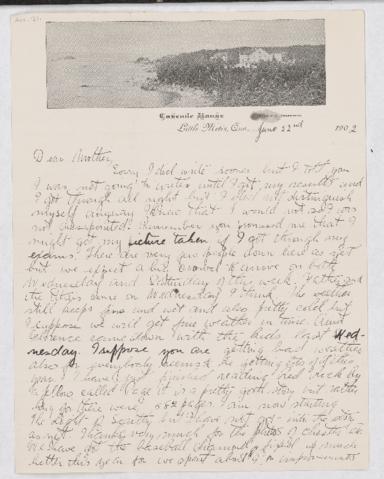 Cascade House
Little Metis, Que., June 22nd 1902
Dear Mother,
Sorry I did write sooner but I told you
I was not going to write until I got my results and
I got through all right but I did not distinguish
myself anyway I knew that I would not so I was
not disappointed. Remember you promised me that I
might get my picture taken if I got through my
exams. There are very few people down here as yet
but we expect a big crowd to arrive on both
Wednesday and Saturday of this week. Father and
the boys came on Wednesday I think. The weather
still keeps fine and wet and also pretty cold but
I suppose we will get fine weather in time. Aunt
Florence came down with the kids last Wed-
nesday. I suppose you are getting bad weather
also for everybody seems to be getting it
you. I have just finished reading red rock by
a fellow called Page it is a pretty good story but rather
long for there were 584 pages I am now starting
the Light of Scarthey but I have not got into the story
as yet. Thanks very much for the
We have got the baseball diamond fixed up much
better this year for we spent about $ on improvements